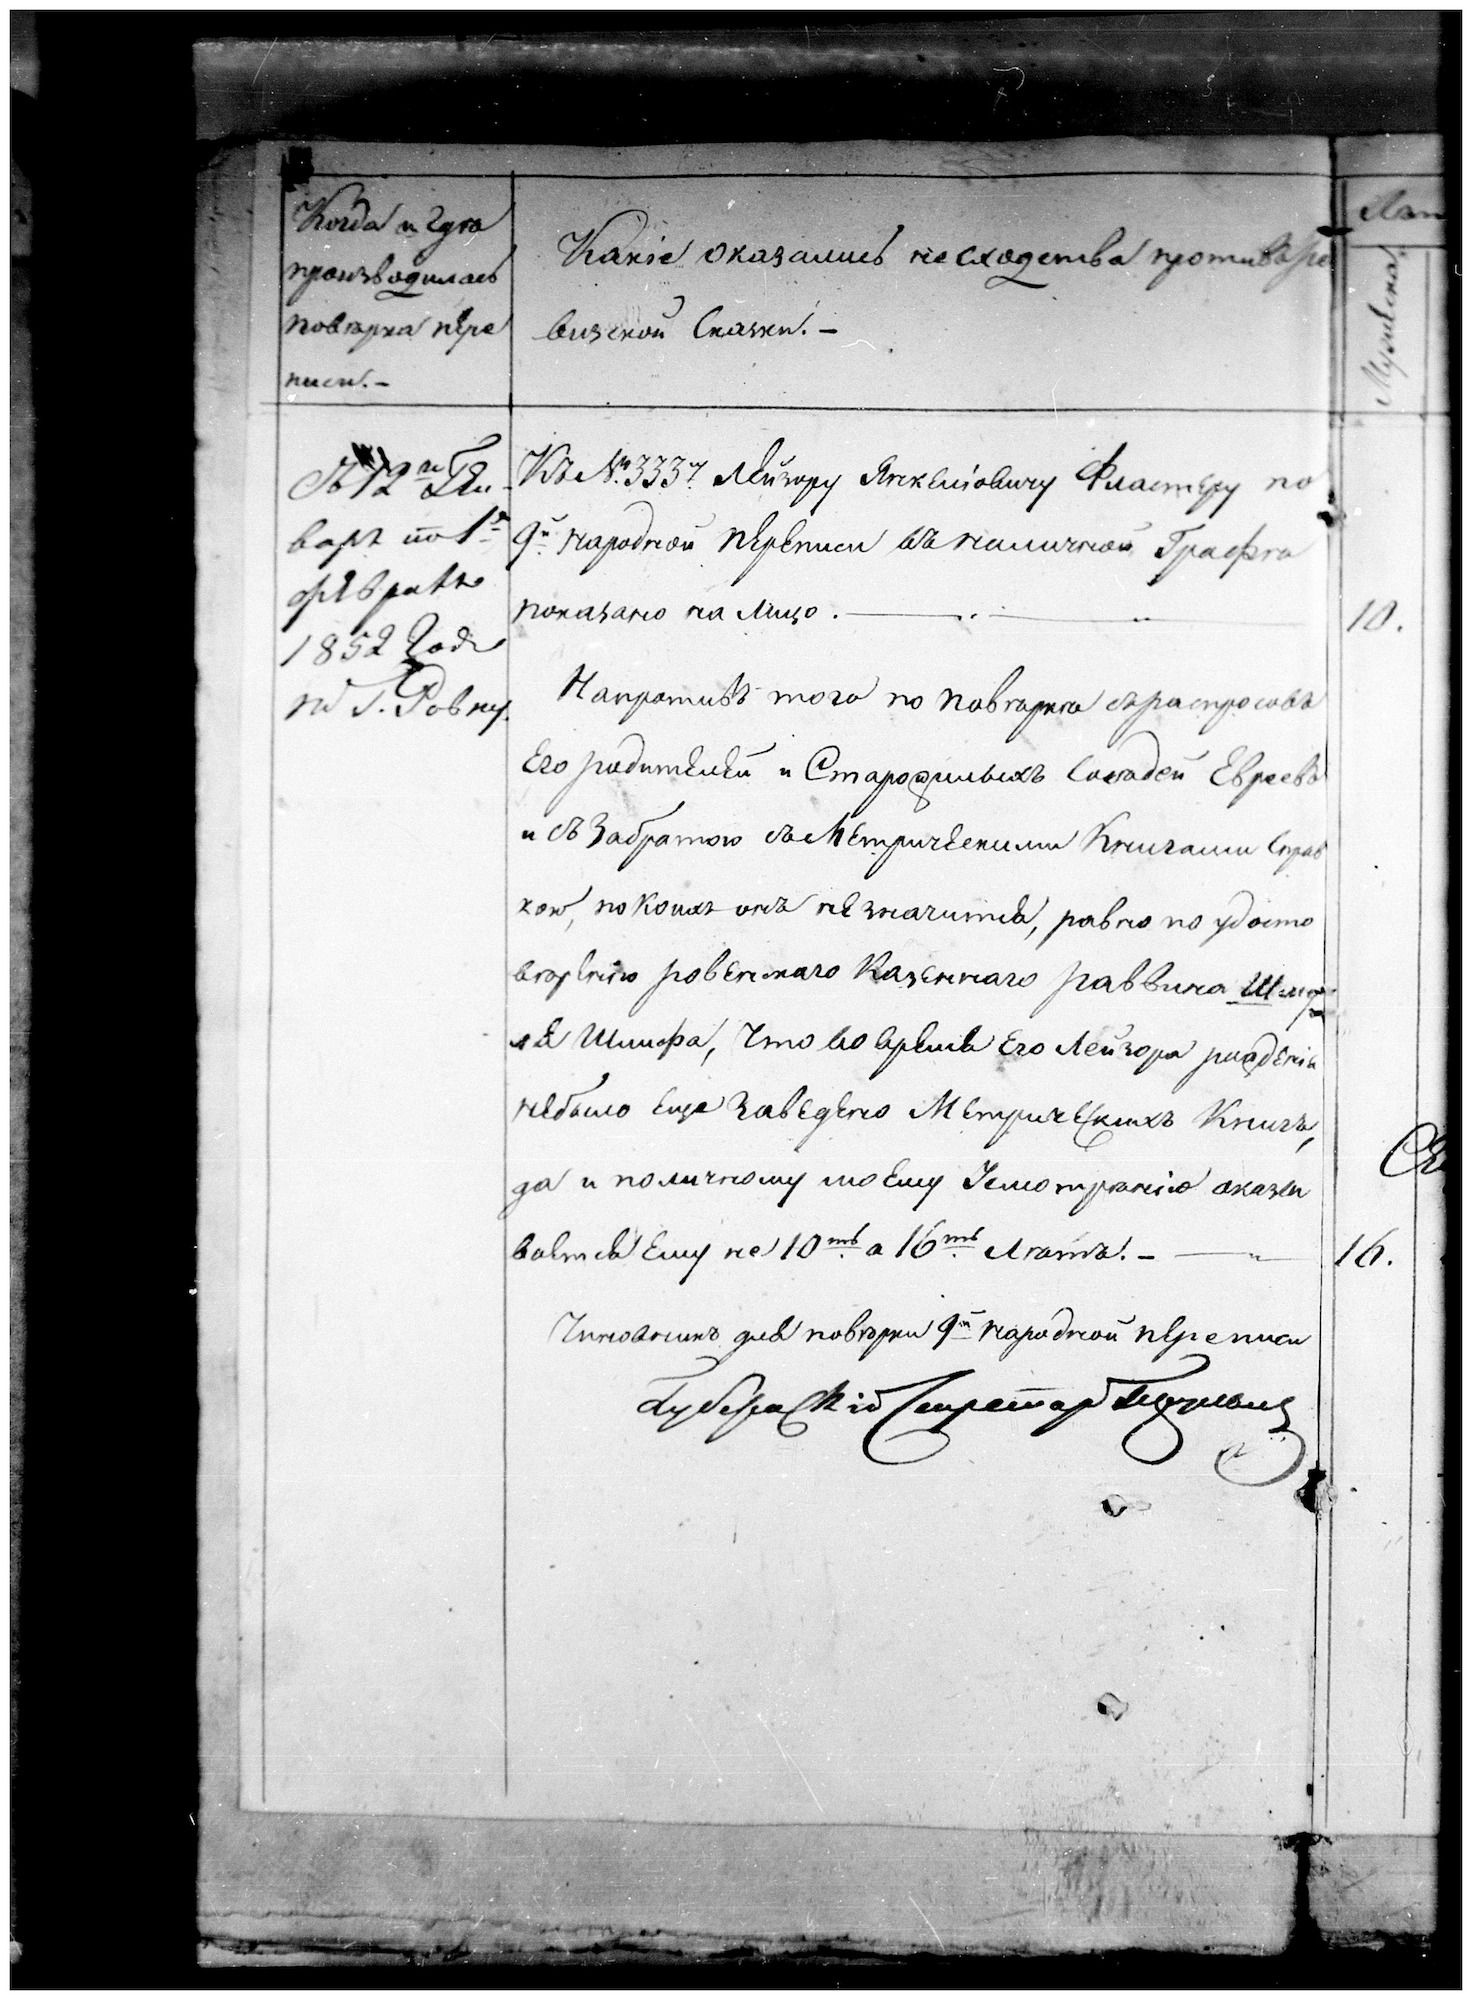 Когда и гдѣ
производилась
повѣрка пере
писи. –
Какіе оказались несходства противъ ре
визской Сказки. –
Лѣт
Мужеска
Съ 12го Ген
варя по 1е
февраля
1852 Года
по Г. Ровну.
Къ № 3337 Лейзору Янкеліовичу Фластеру по
9й народной переписи въ наличной Графѣ
показано на лицо.
10.
Напротивъ того по повѣркѣ съ распросовъ
Его родителей и Старожилыхъ соседей Евреевъ
и съ Забратою съ Метрическими Книгами справ
кою, по коихъ онъ не значится, равно по удосто
вѣренію ровенскаго Казеннаго раввина
Шлифа, что во время Его Лейзора рожденія
небыло еще Заведено Метрическихъ Книгъ,
да и по личному моему Усмотренію оказы
вается Ему не 10ть а 16ть Лѣтъ. –
16.
Чиновникъ для повѣрки 9й народной переписи
Губернскій Секретарь